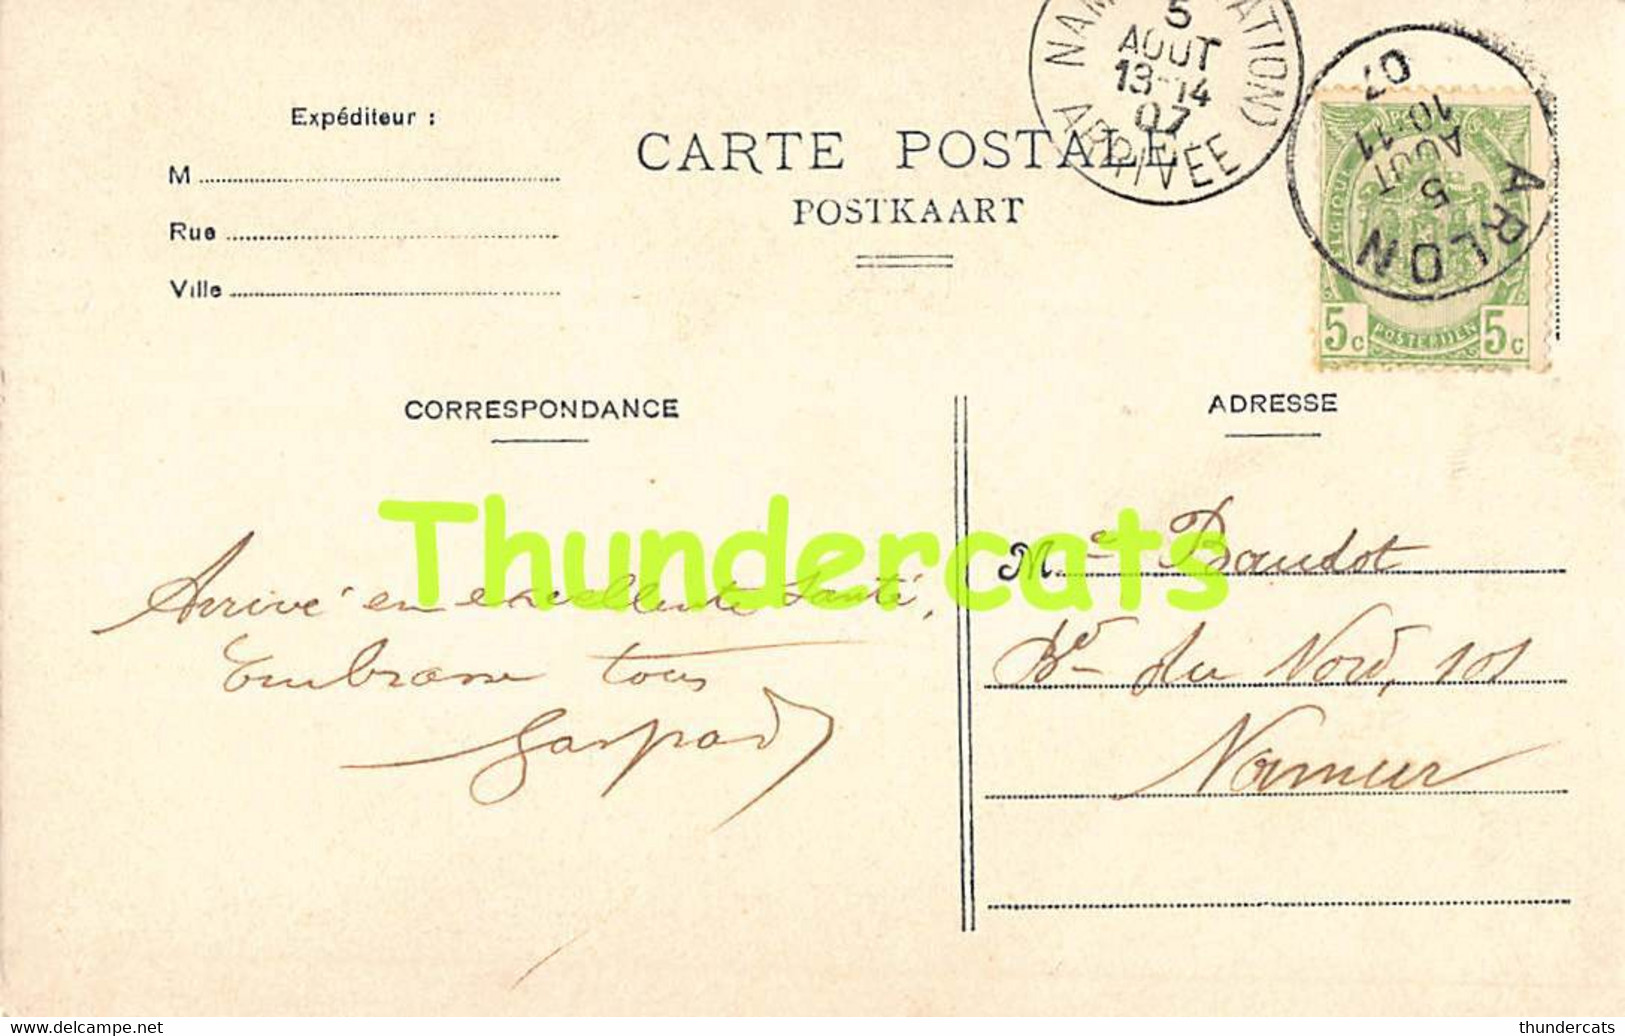 NAM ATION)
5
AOUT
13-14
07
ARRIVÉE
ARLON
5
AOUT
10-11
07
BELGIQUE
5c POSTERIJEN 5c
Expéditeur :
M
Rue
Ville
CARTE POSTALE
POSTKAART
CORRESPONDANCE
ADRESSE
Thundercats
Arrivé en excellente santé,
Embrasse tous
Gaspard
Me Baudot
Bd du Nord, 101
Namur
www.delcampe.net
thundercats